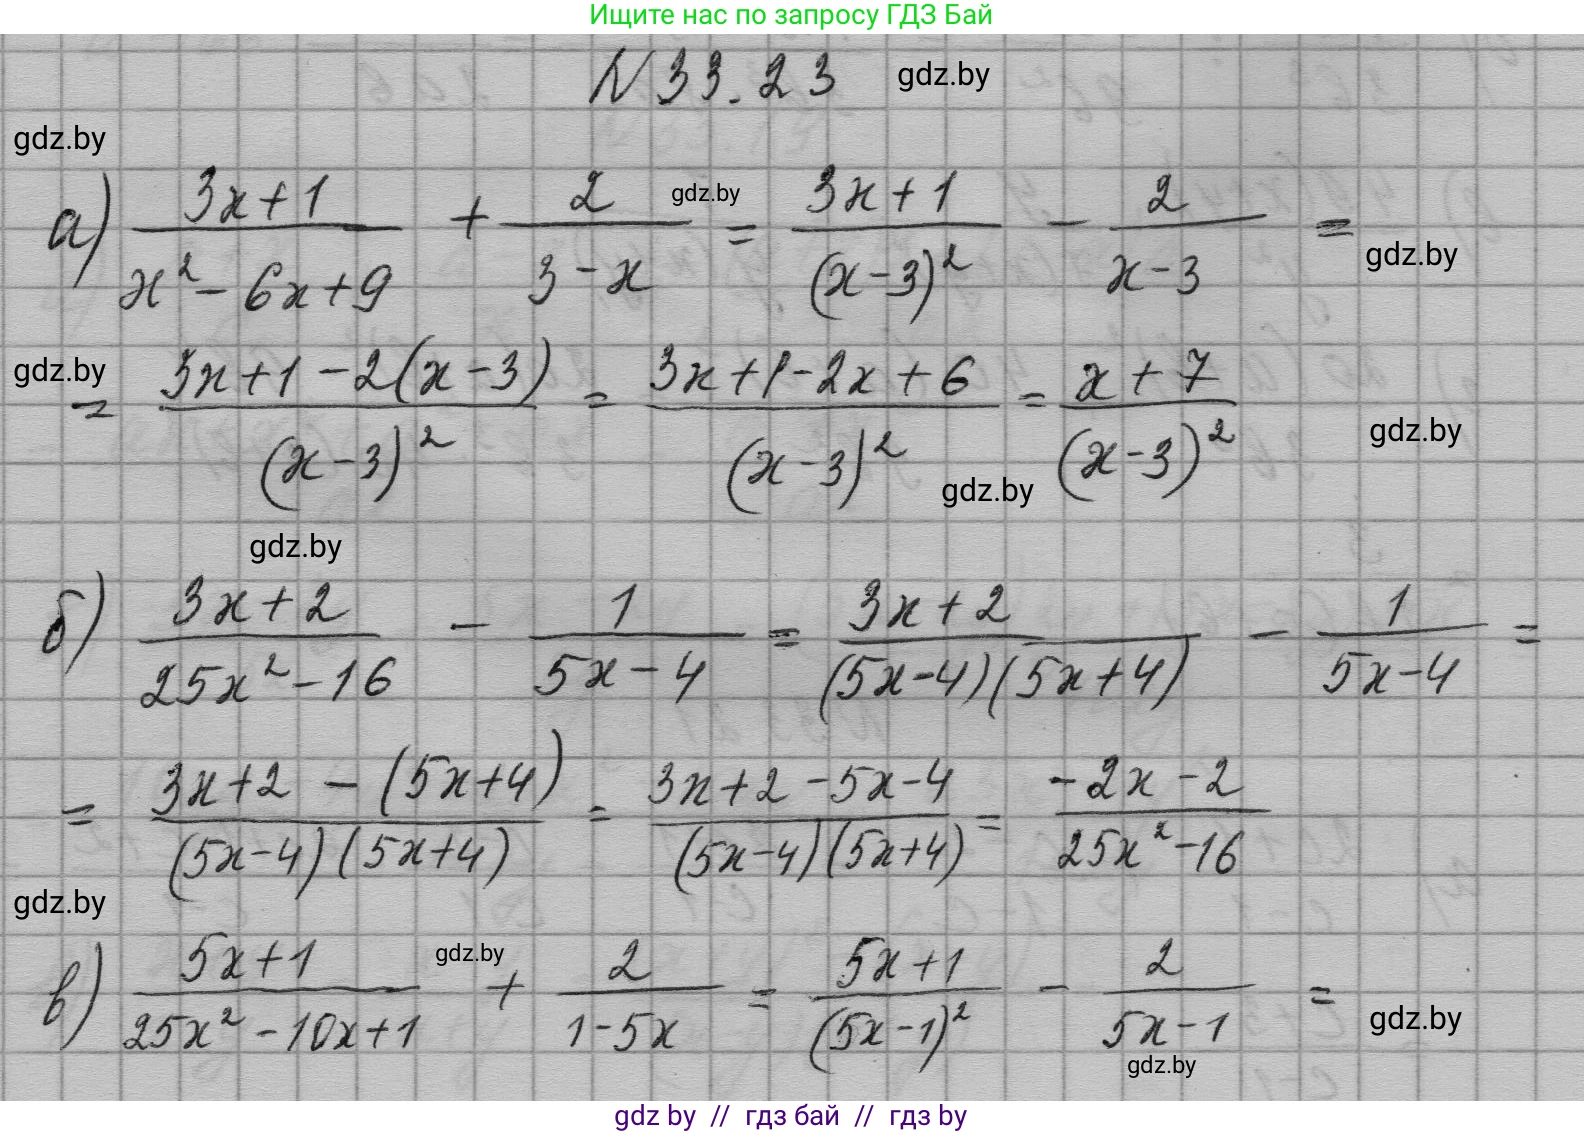 Ищите нас по запросу ГДЗ Бай
N 33.23 gdz.by
gdz.by
а) (3x+1)/(x²-6x+9) + 2/(3-x) = (3x+1)/(x-3)² - 2/(x-3) =
gdz.by
gdz.by
gdz.by
= (3x+1-2(x-3))/(x-3)² = (3x+1-2x+6)/(x-3)² = (x+7)/(x-3)²
gdz.by
gdz.by
gdz.by
б) (3x+2)/(25x²-16) - 1/(5x-4) = (3x+2)/((5x-4)(5x+4)) - 1/(5x-4) =
= (3x+2-(5x+4))/((5x-4)(5x+4)) = (3x+2-5x-4)/((5x-4)(5x+4)) = (-2x-2)/(25x²-16)
gdz.by
gdz.by
в) (5x+1)/(25x²-10x+1) + 2/(1-5x) = (5x+1)/(5x-1)² - 2/(5x-1) =
gdz.by
gdz.by
gdz by // гдз бай // гдз by